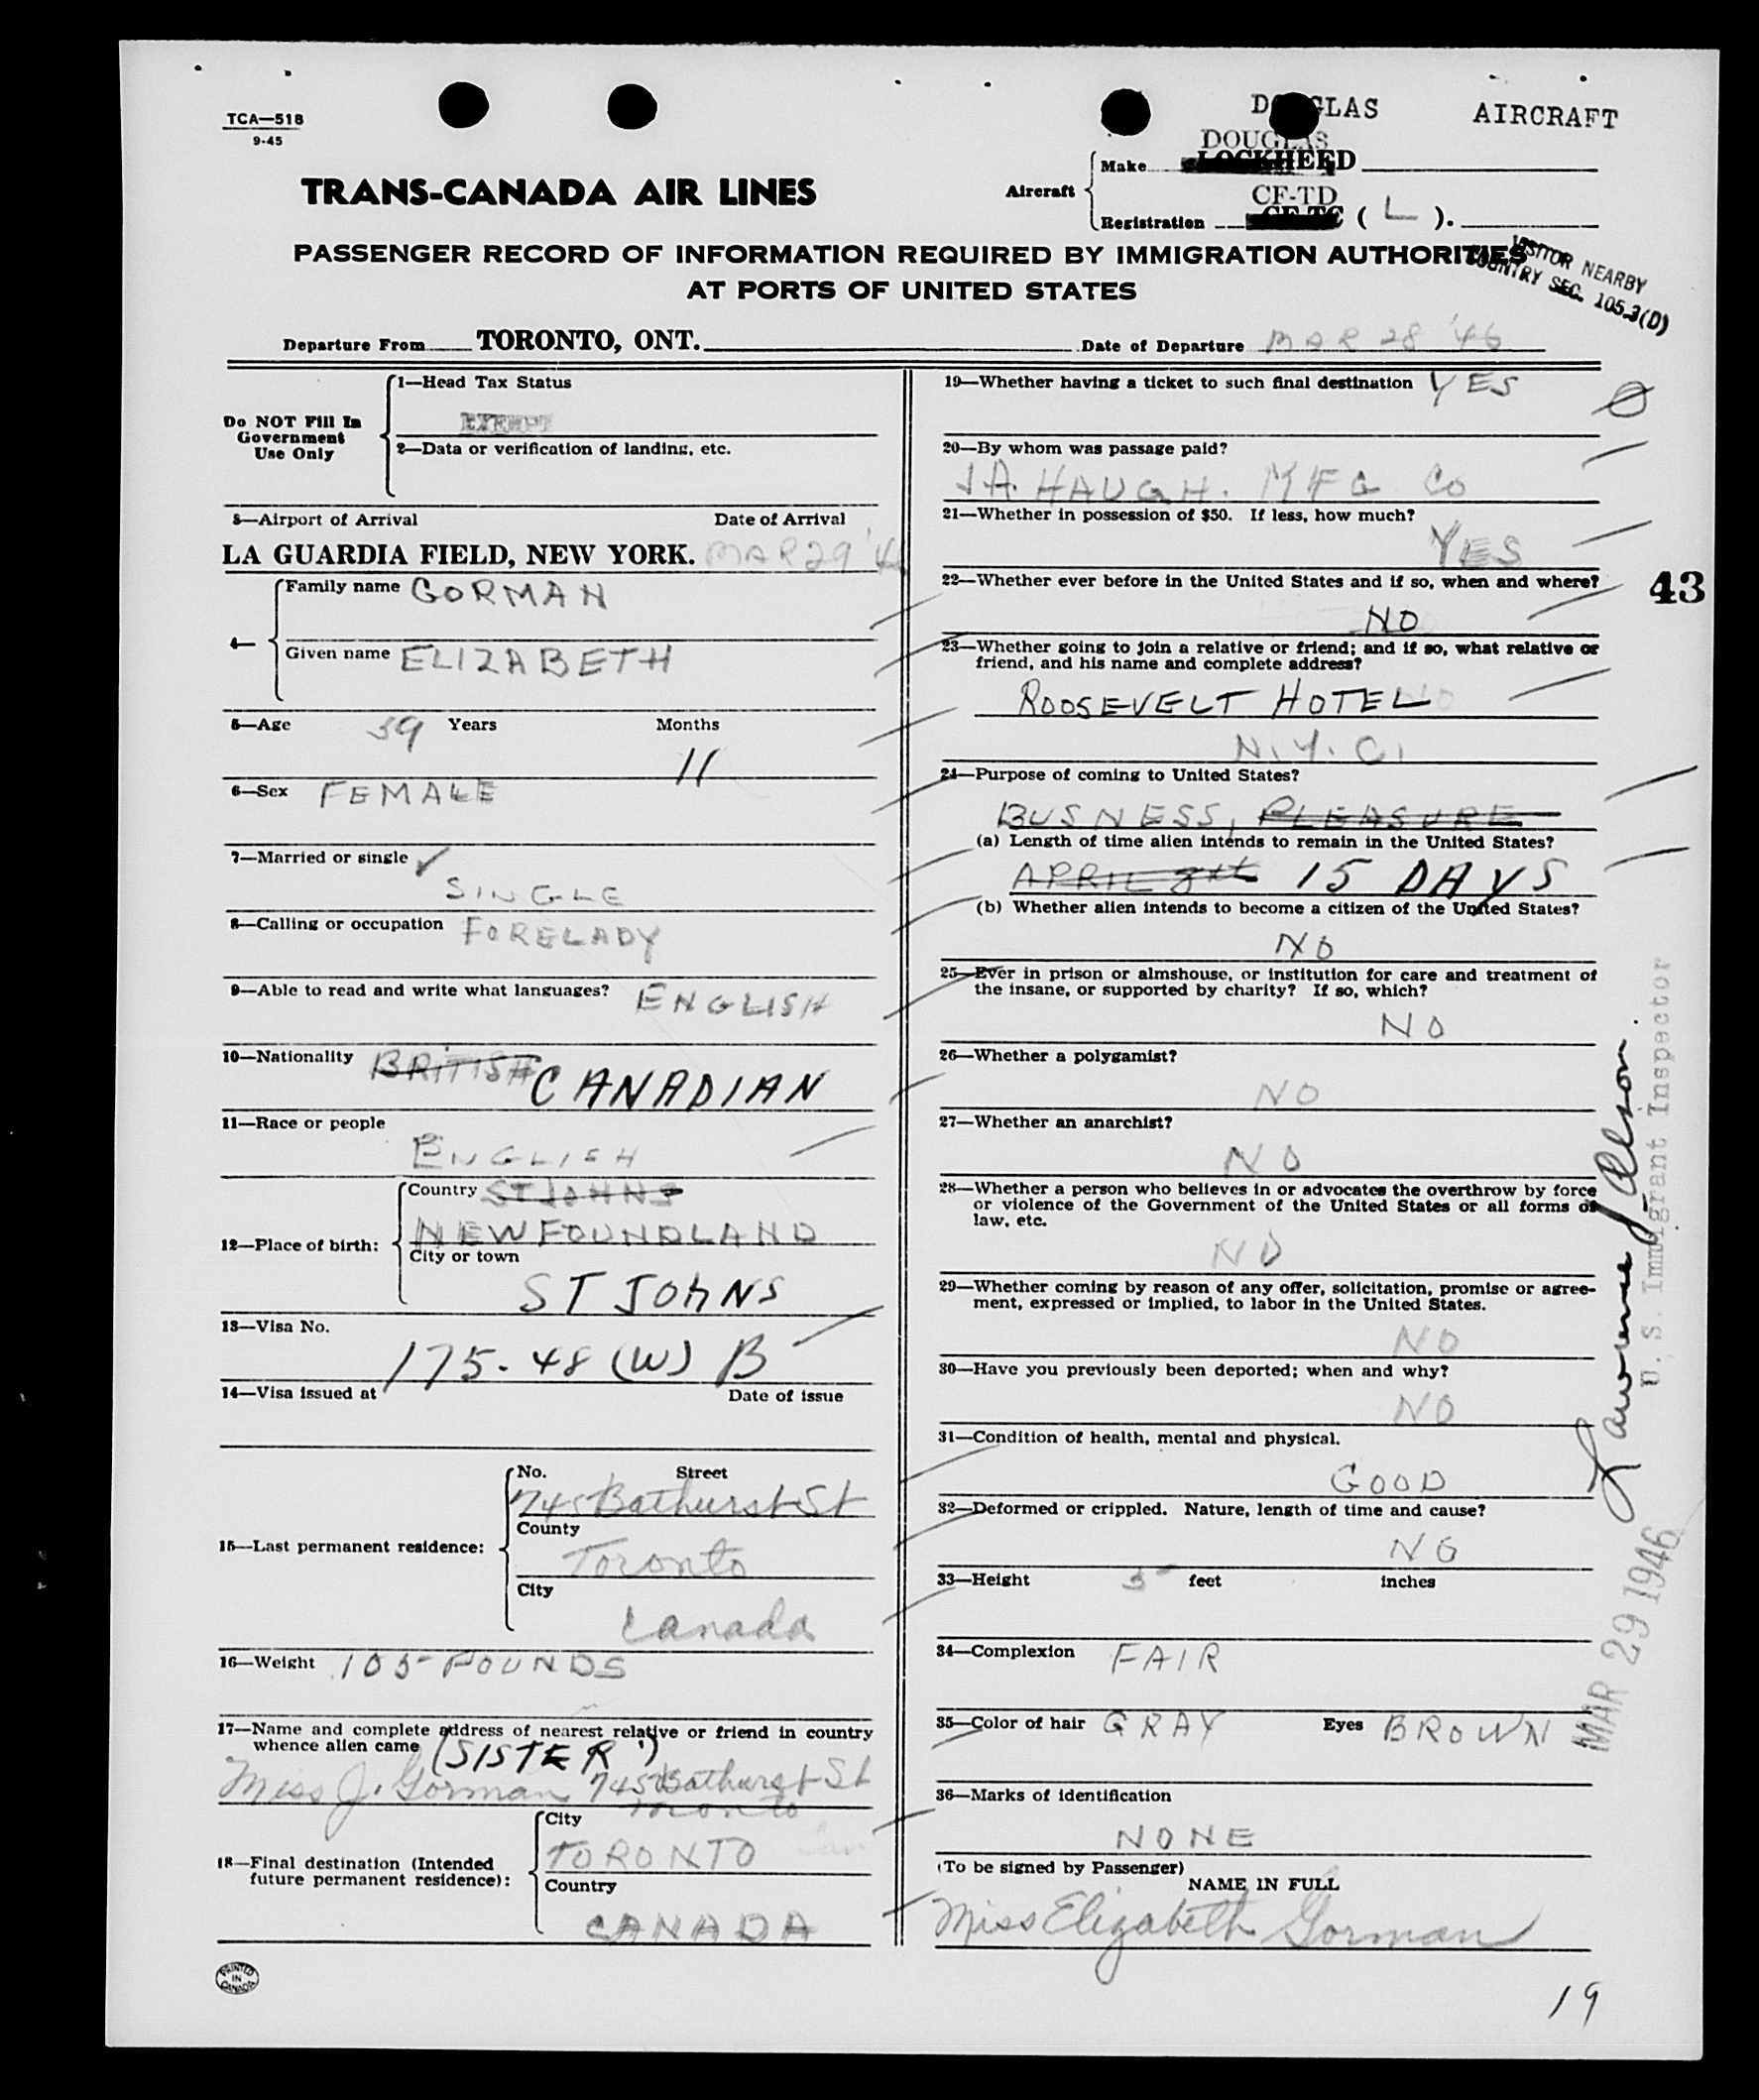 TCA—518
9-45
DOUGLAS AIRCRAFT
TRANS-CANADA AIR LINES
Aircraft
Make DOUGLAS LOCKHEED
Registration CF-TD CF-TC ( L ).
PASSENGER RECORD OF INFORMATION REQUIRED BY IMMIGRATION AUTHORITIES
AT PORTS OF UNITED STATES
VISITOR NEARBY
COUNTRY SEC. 105.3(D)
Departure From TORONTO, ONT. Date of Departure MAR 28 '46
Do NOT Fill In
Government
Use Only
1—Head Tax Status
EXEMPT
2—Data or verification of landing, etc.
3—Airport of Arrival Date of Arrival
LA GUARDIA FIELD, NEW YORK. MAR 29 '46
4—
Family name GORMAN
Given name ELIZABETH
5—Age 39 Years Months
11
6—Sex FEMALE
7—Married or single
SINGLE
8—Calling or occupation FORELADY
9—Able to read and write what languages? ENGLISH
10—Nationality BRITISH CANADIAN
11—Race or people
ENGLISH
12—Place of birth:
Country ST JOHNS
NEWFOUNDLAND
City or town
ST JOHNS
13—Visa No.
175-48 (W) B
14—Visa issued at Date of issue
15—Last permanent residence:
No. Street
745 Bathurst St
County
Toronto
City
Canada
16—Weight 105 POUNDS
17—Name and complete address of nearest relative or friend in country
whence alien came (SISTER)
Miss J. Gorman 745 Bathurst St
Toronto
18—Final destination (Intended
future permanent residence):
City
TORONTO
Country
CANADA
PRINTED
IN
CANADA
19—Whether having a ticket to such final destination YES
20—By whom was passage paid?
J.A. HAUGH. MFG Co
21—Whether in possession of $50. If less, how much?
YES
22—Whether ever before in the United States and if so, when and where?
NO
43
23—Whether going to join a relative or friend; and if so, what relative or
friend, and his name and complete address?
ROOSEVELT HOTEL NO
N.Y.C.
24—Purpose of coming to United States?
BUSNESS, PLEASURE
(a) Length of time alien intends to remain in the United States?
APRIL 15 DAYS
(b) Whether alien intends to become a citizen of the United States?
NO
25—Ever in prison or almshouse, or institution for care and treatment of
the insane, or supported by charity? If so, which?
NO
26—Whether a polygamist?
NO
27—Whether an anarchist?
NO
28—Whether a person who believes in or advocates the overthrow by force
or violence of the Government of the United States or all forms of
law, etc.
NO
29—Whether coming by reason of any offer, solicitation, promise or agree-
ment, expressed or implied, to labor in the United States.
NO
30—Have you previously been deported; when and why?
NO
31—Condition of health, mental and physical.
GOOD
32—Deformed or crippled. Nature, length of time and cause?
NO
33—Height 5 feet inches
34—Complexion FAIR
35—Color of hair GRAY Eyes BROWN
36—Marks of identification
NONE
(To be signed by Passenger)
NAME IN FULL
Miss Elizabeth Gorman
19
Lawrence J. Olson
U. S. Immigrant Inspector
MAR 29 1946